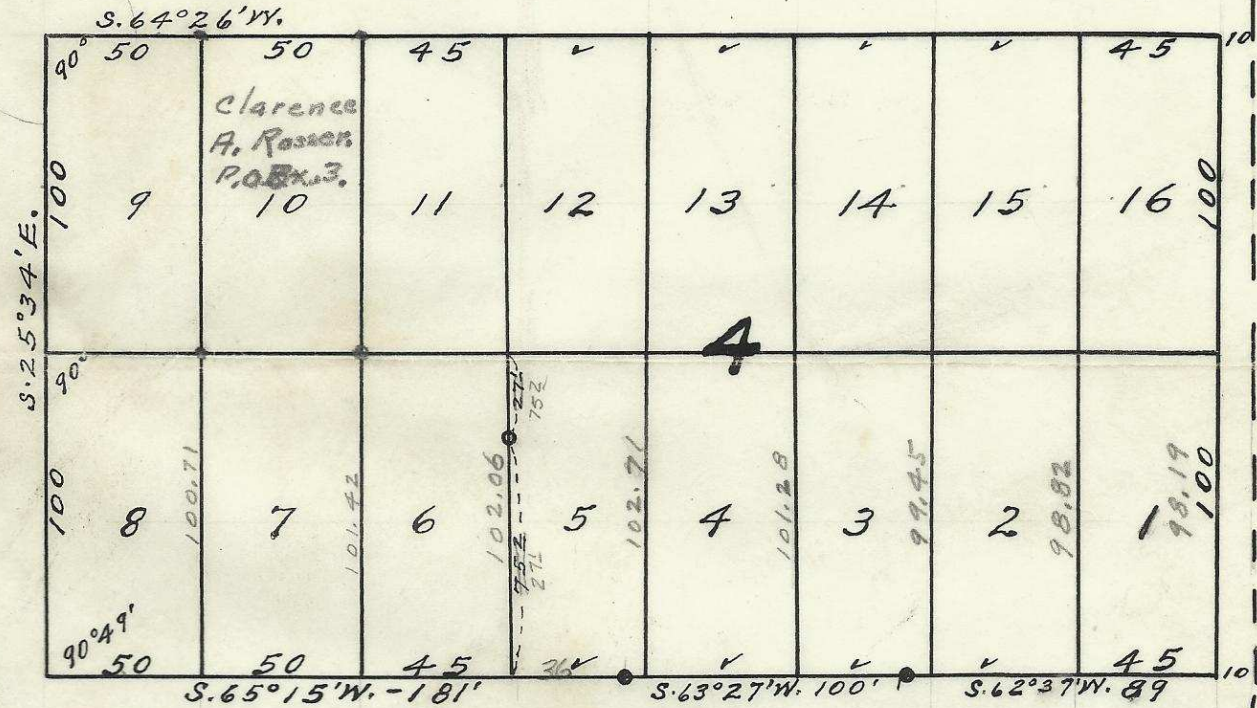 S.64°26'W.
90° 50 50 45 ✓ ✓ ✓ ✓ 45 10
Clarence
A. Rosser.
P.O.Bx.3.
S.25°34'E.
100 9 10 11 12 13 14 15 16 100
4
90°
27½
75½
100 8 100.71 7 101.42 6 102.06 5 102.71 4 101.28 3 99.45 2 98.82 1 98.19 100
75½
27½
90°49'
50 50 45 36 ✓ ✓ ✓ ✓ 45 10
S.65°15'W. - 181' S.63°27'W. 100' S.62°37'W. 89